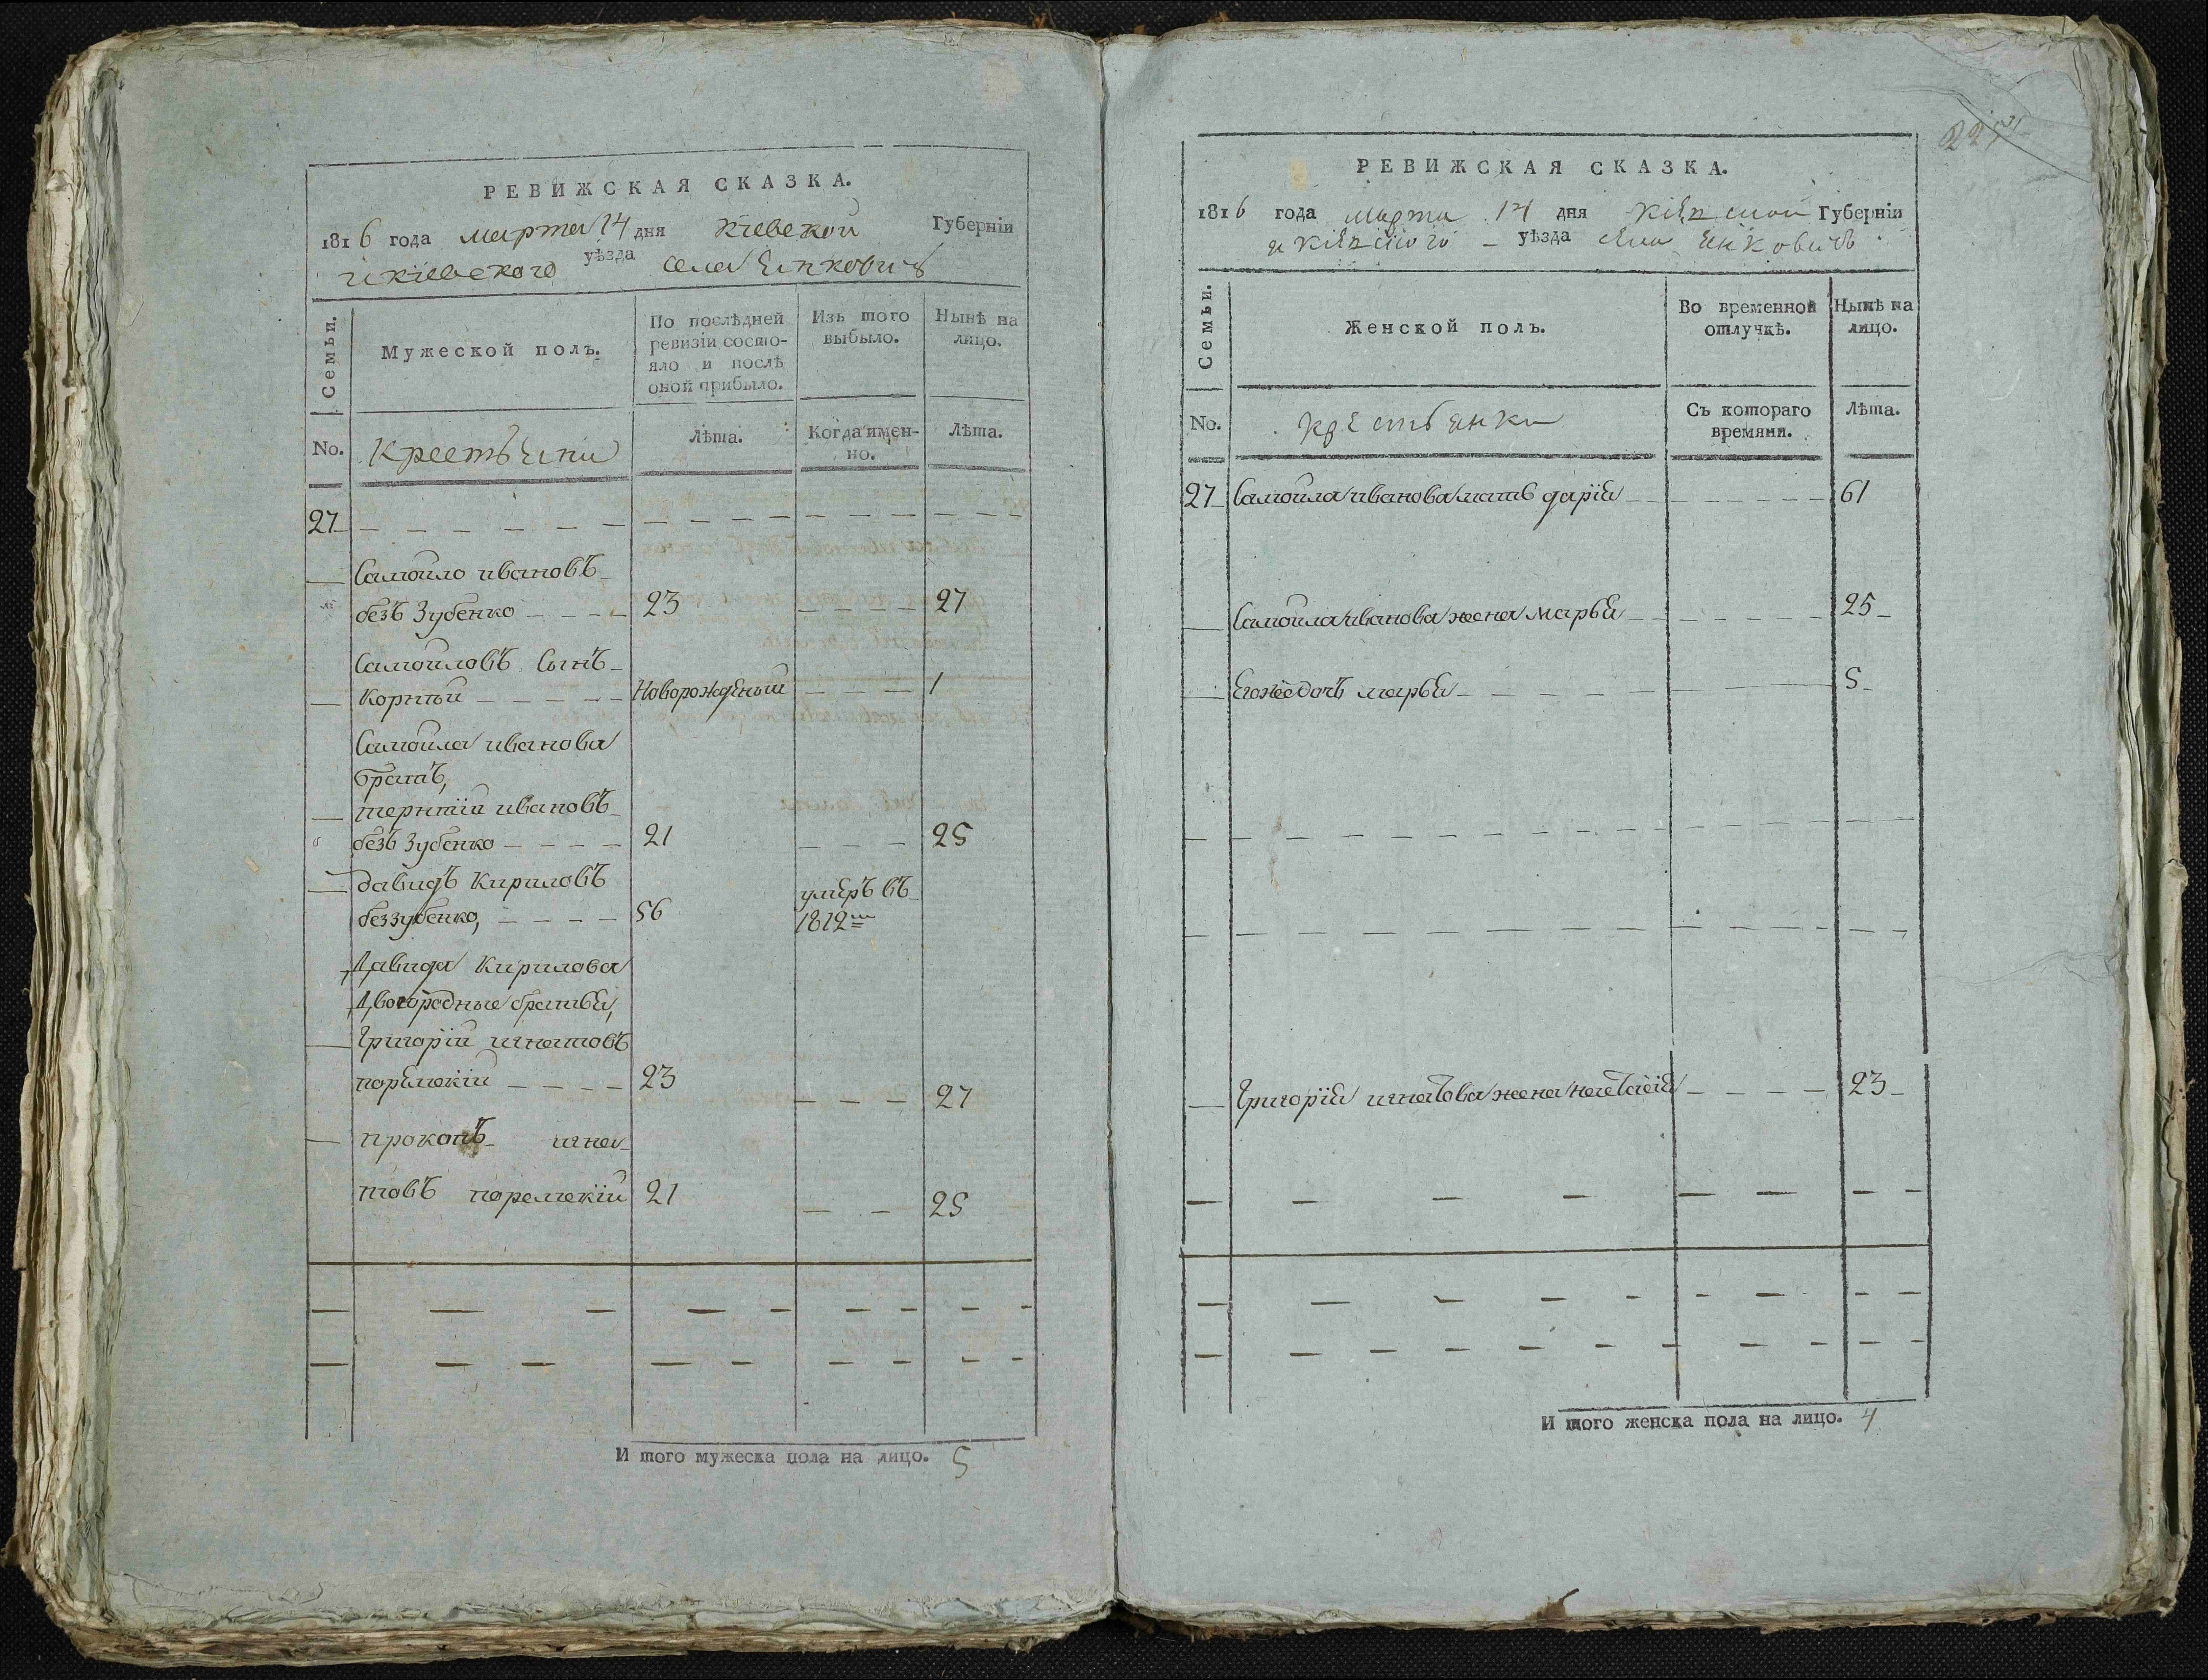 РЕВИЖСКАЯ СКАЗКА.
1816 года марта 14 дня Кіевской Губерніи
и Кіевского уѣзда села Янковичъ
Семьи.
Мужеской полъ.
По послѣдней ревизіи состо-
яло и послѣ
оной прибыло.
Изъ того
выбыло.
Нынѣ на
лицо.
No.
Крестьяни
Лѣта.
Когда имен-
но.
Лѣта.
27
Самойло ивановъ
безъ Зубенко 23 27
Самойловъ Сынъ
Корнѣй Новорожденый 1
Самойла иванова
братъ,
тернтій ивановъ
безъ Зубенко 21 25
давидъ Кириловъ
беззубенко, 56 умеръ въ
1812м
Давида Кирилова
Двоюродные братья,
Григорій игнатовъ
поремскій 23 27
прокопъ игна
товъ поремскій 21 25
И того мужеска пола на лицо. 5
РЕВИЖСКАЯ СКАЗКА.
1816 года марта 14 дня Кіевской Губерніи
и Кіевского уѣзда села Янковичъ
Семьи.
Женской полъ.
Во временной
отлучкѣ.
Нынѣ на
лицо.
No.
Крестьянки
Съ котораго
времяни.
Лѣта.
27 Самойла иванова мать дарія 61
Самойла иванова жена марья 25
Егожё дочь марья 5
Григорія игнатова жена настасія 23
И того женска пола на лицо. 4